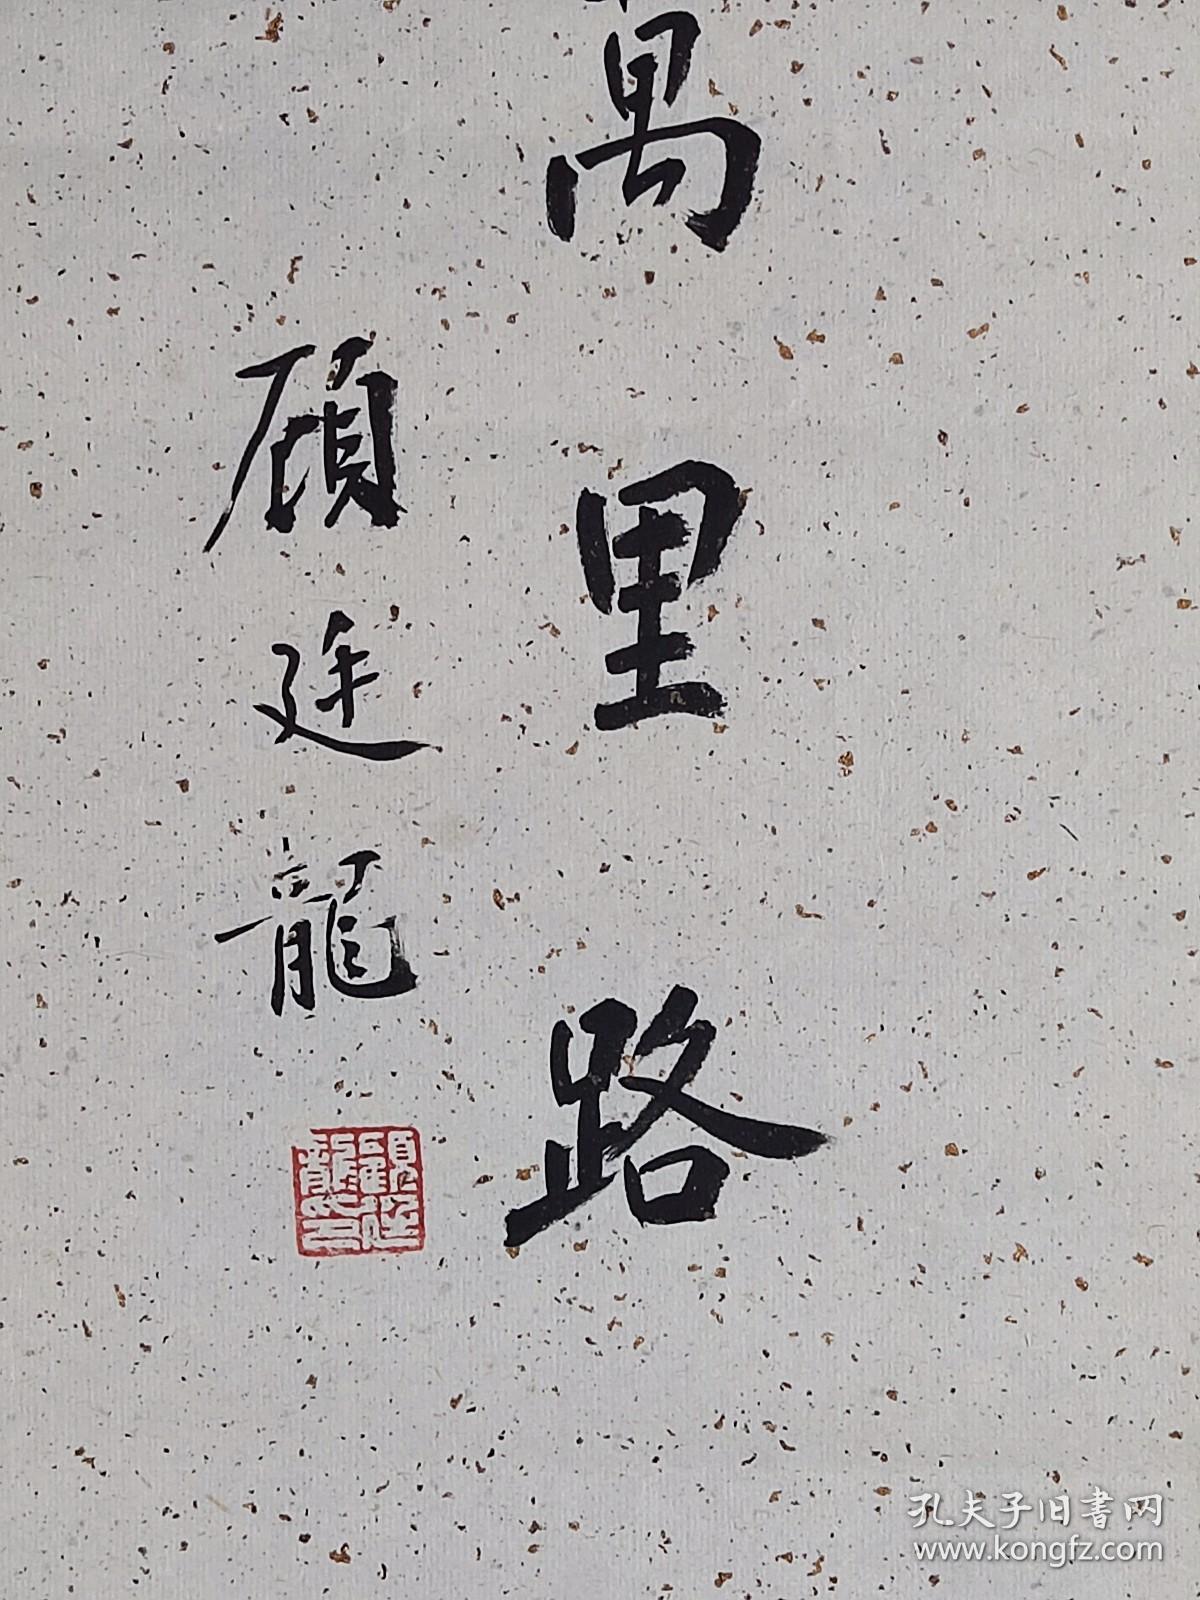 萬里路
顧廷龍
孔夫子旧書网
www.kongfz.com